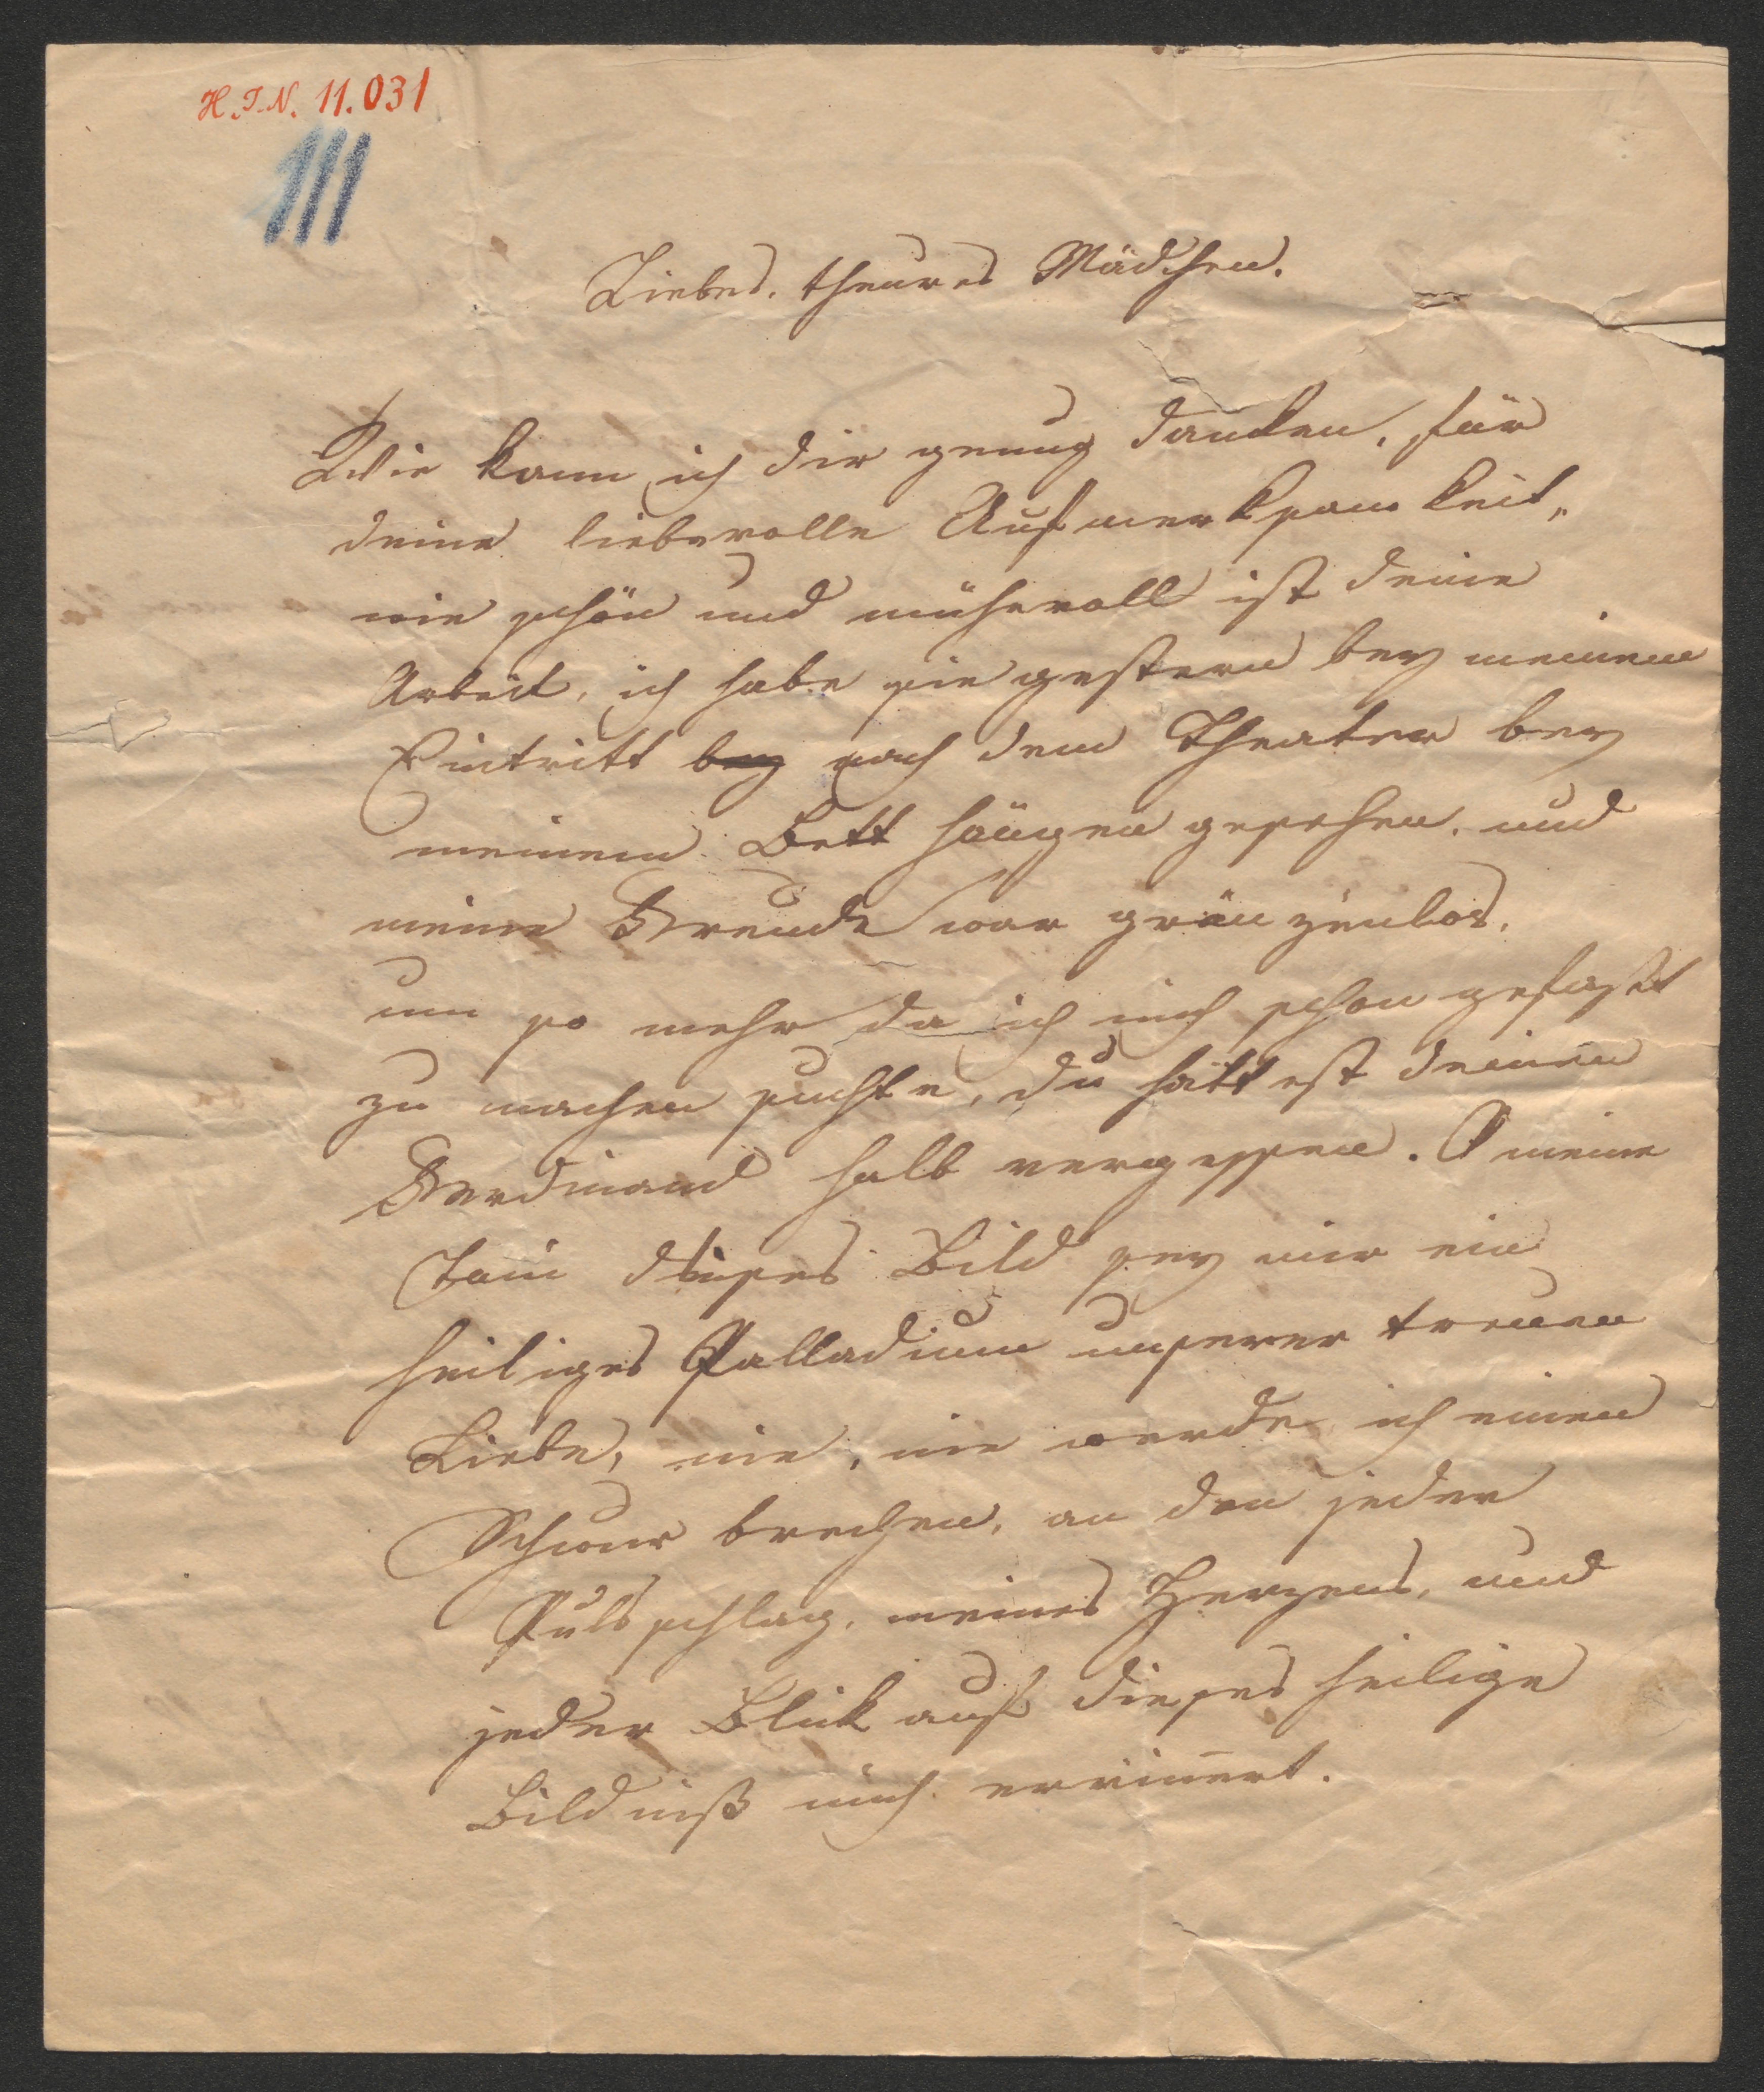 H.I.N. 11.031
III
Liebes, theures Mädchen.
Wie kann ich dir genug danken, für
deine liebevolle Aufmerksamkeit,
wie schön und mühevoll ist deine
Arbeit, ich habe sie gestern bey meinem
Eintritt bey nach dem Theater bey
meinem Bett hängen gesehen, und
meine Freude war gränzenlos,
um so mehr da ich mich schon gefaßt
zu machen suchte, du hättest deinen
Ferdinand halb vergessen. O meine
Toni dieses Bild sey mir ein
heiliges Palladium unserer treuen
Liebe, nie, nie werde ich einen
Schwur brechen, an den jeder
Pulsschlag, meines Herzens, und
jeder Blick auf dieses heilige
Bildniß mich erinnert.